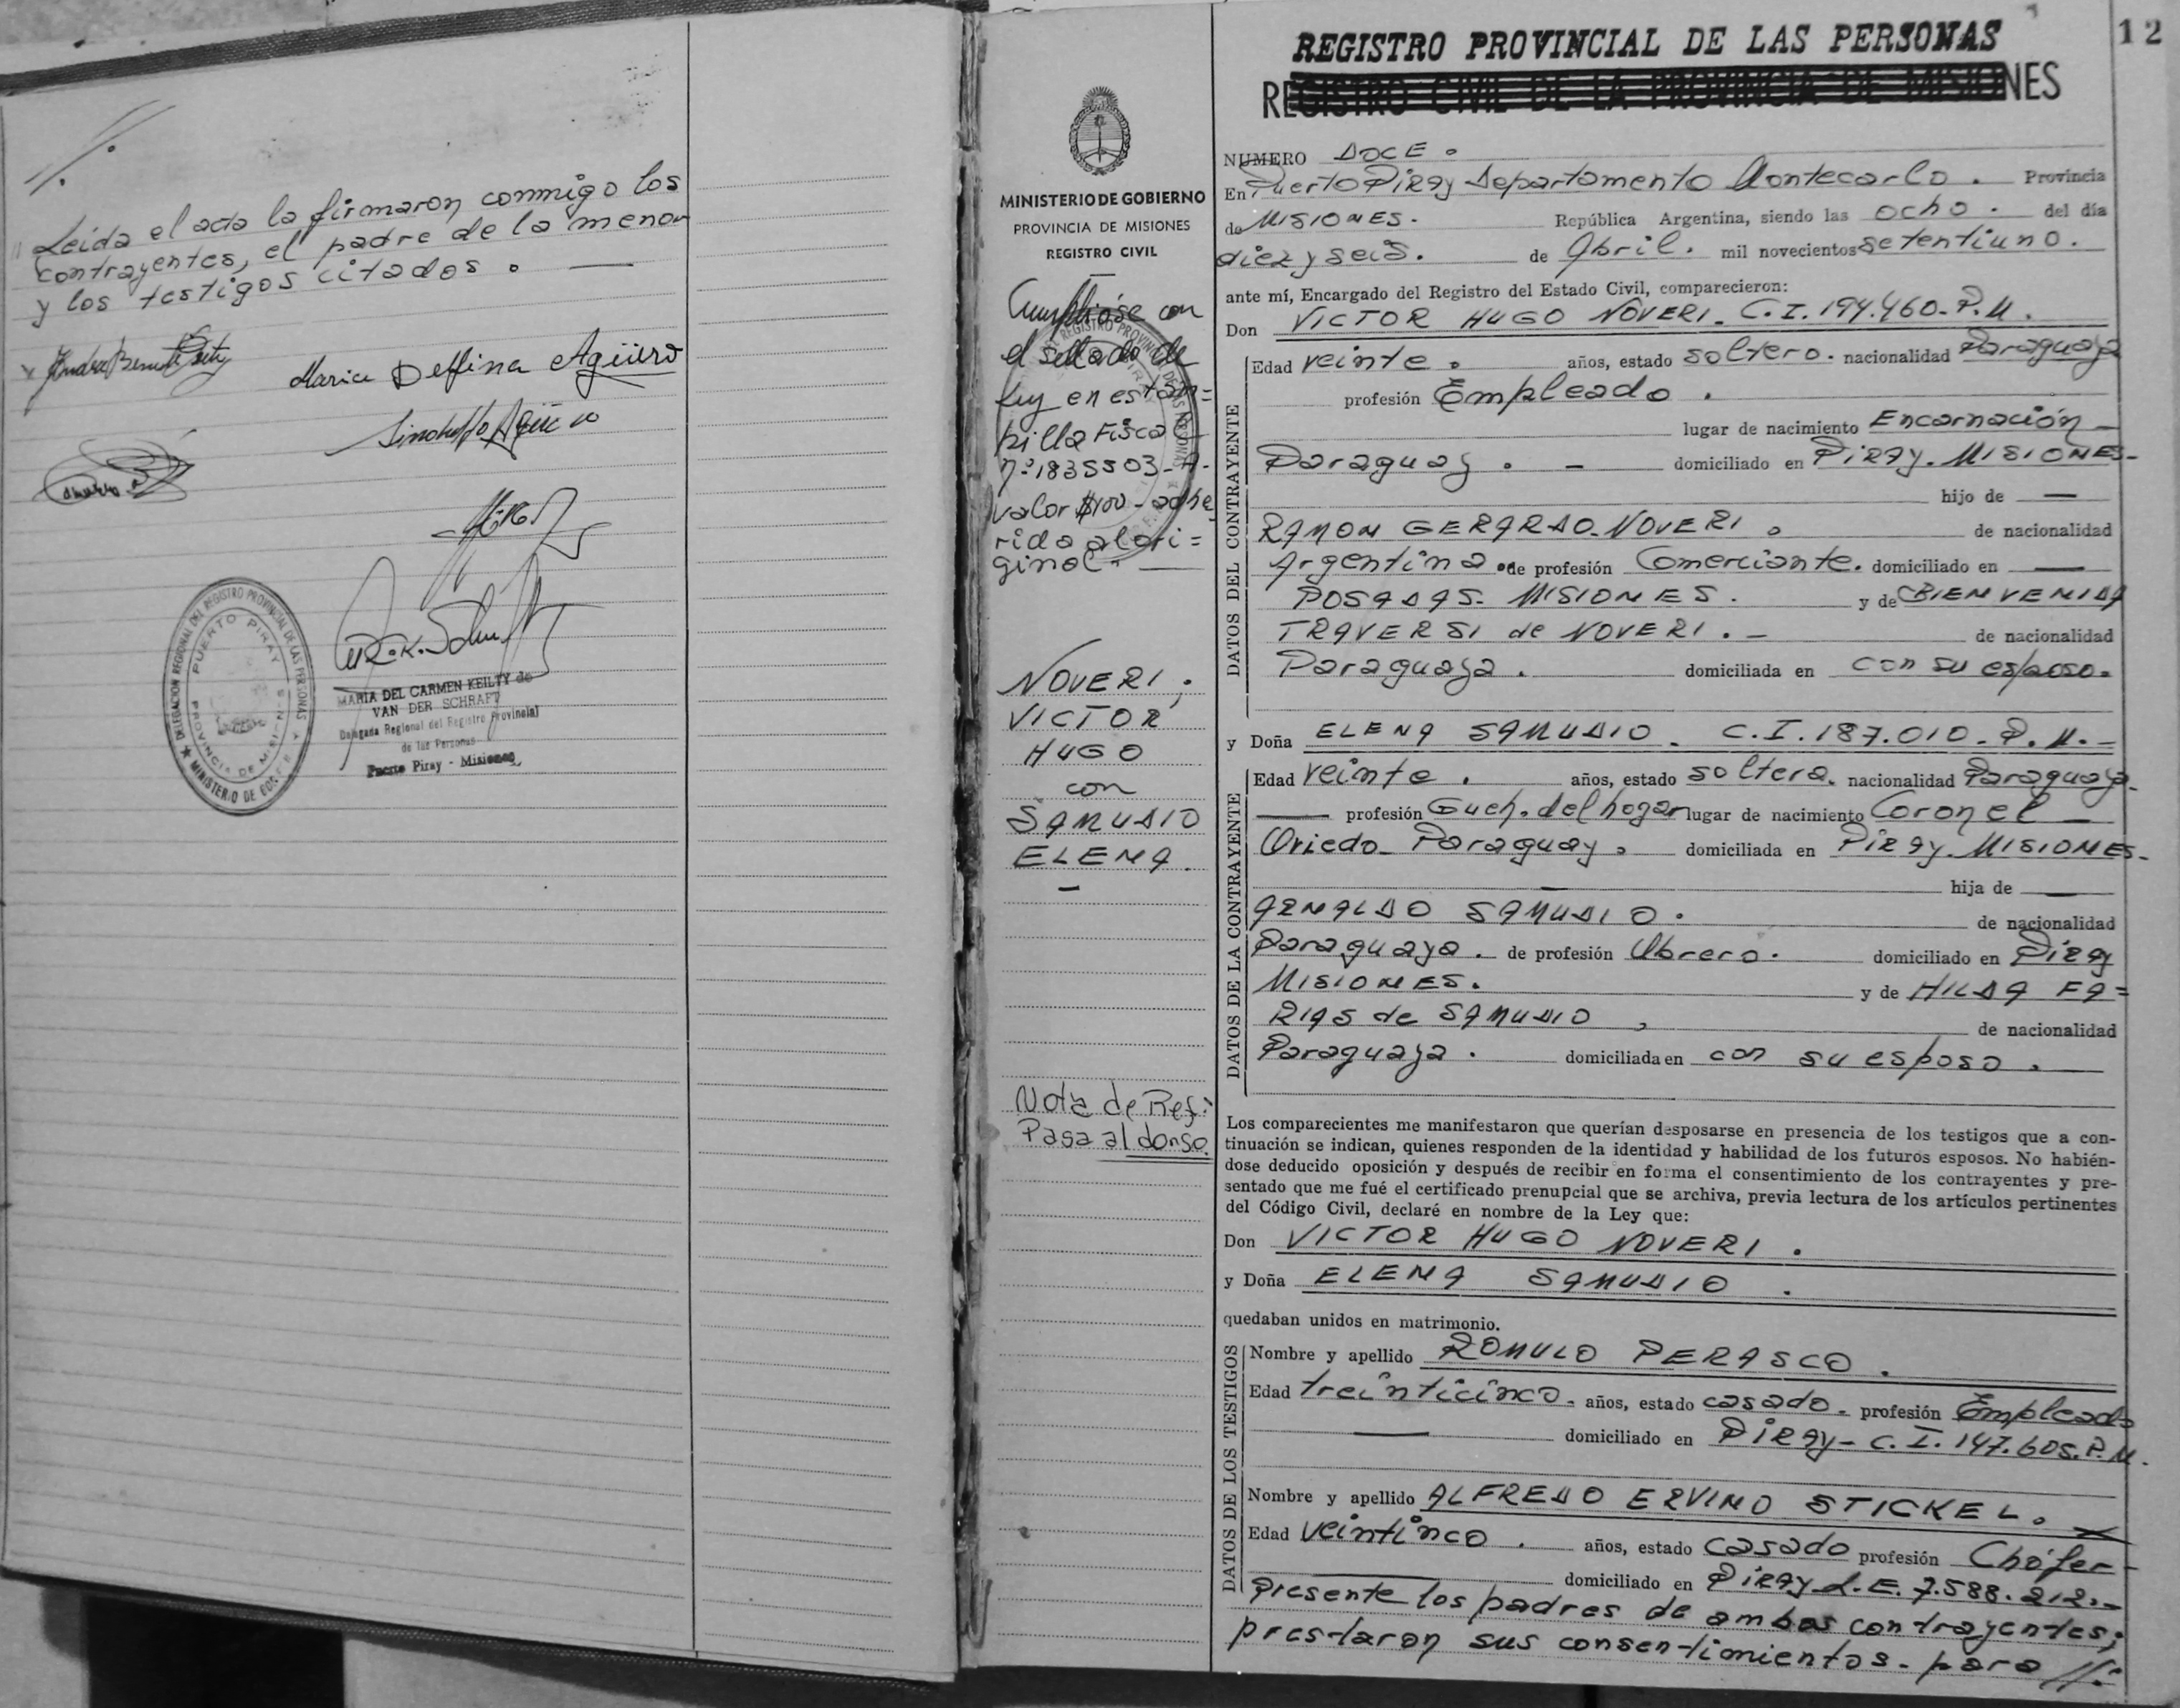 //.
Leida el acta la firmaron conmigo los
contrayentes, el padre de la menor
y los testigos citados. —
Maria Delfina Agüero
Sindulfo Agüero
DELEGACION REGIONAL DEL REGISTRO PROVINCIAL DE LAS PERSONAS
PUERTO PIRAY
PROVINCIA DE MISIONES
MINISTERIO DE GOB
MARIA DEL CARMEN KEILTY de
VAN DER SCHRAFT
Delegada Regional del Registro Provincial
de las Personas
Puerto Piray - Misiones
MINISTERIO DE GOBIERNO
PROVINCIA DE MISIONES
REGISTRO CIVIL
Cumplióse con
el sellado de
ley en estam=
pilla Fiscal
n:º1835503-A-
valor $100-adhe
rida al ori=
ginal. —
NOVERI,
VICTOR
HUGO
con
SAMUDIO
ELENA.
—
Nota de Ref:
Pasa al dorso.
12
REGISTRO PROVINCIAL DE LAS PERSONAS
REGISTRO CIVIL DE LA PROVINCIA DE MISIONES
NUMERO DOCE.
En Puerto Piray Departamento Montecarlo. Provincia
de MISIONES. República Argentina, siendo las ocho. del día
diez y seis. de Abril. mil novecientos setentiuno.
ante mí, Encargado del Registro del Estado Civil, comparecieron:
Don VICTOR HUGO NOVERI. C.I. 194.460-P.M.
DATOS DEL CONTRAYENTE
Edad veinte. años, estado soltero. nacionalidad Paraguaya
profesión Empleado.
lugar de nacimiento Encarnación —
Paraguay. - domiciliado en PIRAY. MISIONES-
hijo de —
RAMON GERARDO NOVERI. de nacionalidad
Argentina. de profesión Comerciante. domiciliado en —
POSADAS- MISIONES. y de BIENVENIDA
TRAVERSI de NOVERI. - de nacionalidad
Paraguaya. domiciliada en con su esposo.
y Doña ELENA SAMUDIO. C.I. 187.010-P.M.-
DATOS DE LA CONTRAYENTE
Edad veinte. años, estado soltera. nacionalidad Paraguaya-
— profesión Queh. del hogar lugar de nacimiento Coronel —
Oviedo- Paraguay. domiciliada en PIRAY. MISIONES-
— hija de —
ARNALDO SAMUDIO. de nacionalidad
Paraguaya. de profesión Obrero. domiciliado en PIRAY
MISIONES. y de HILDA FA=
RIAS de SAMUDIO, de nacionalidad
Paraguaya. domiciliada en con su esposo.
Los comparecientes me manifestaron que querían desposarse en presencia de los testigos que a con-
tinuación se indican, quienes responden de la identidad y habilidad de los futuros esposos. No habién-
dose deducido oposición y después de recibir en forma el consentimiento de los contrayentes y pre-
sentado que me fué el certificado prenupcial que se archiva, previa lectura de los artículos pertinentes
del Código Civil, declaré en nombre de la Ley que:
Don VICTOR HUGO NOVERI.
y Doña ELENA SAMUDIO.
quedaban unidos en matrimonio.
DATOS DE LOS TESTIGOS
Nombre y apellido ROMULO PERASCO.
Edad treinticinco. años, estado casado. profesión Empleado
— domiciliado en PIRAY- C.I. 147.605.P.M.
Nombre y apellido ALFREDO ERVINO STICKEL.
Edad veintinco. años, estado casado profesión Chófer-
— domiciliado en PIRAY L.E. 7.588.212.-
presente los padres de ambos contrayentes;
prestaron sus consentimientos. para //: